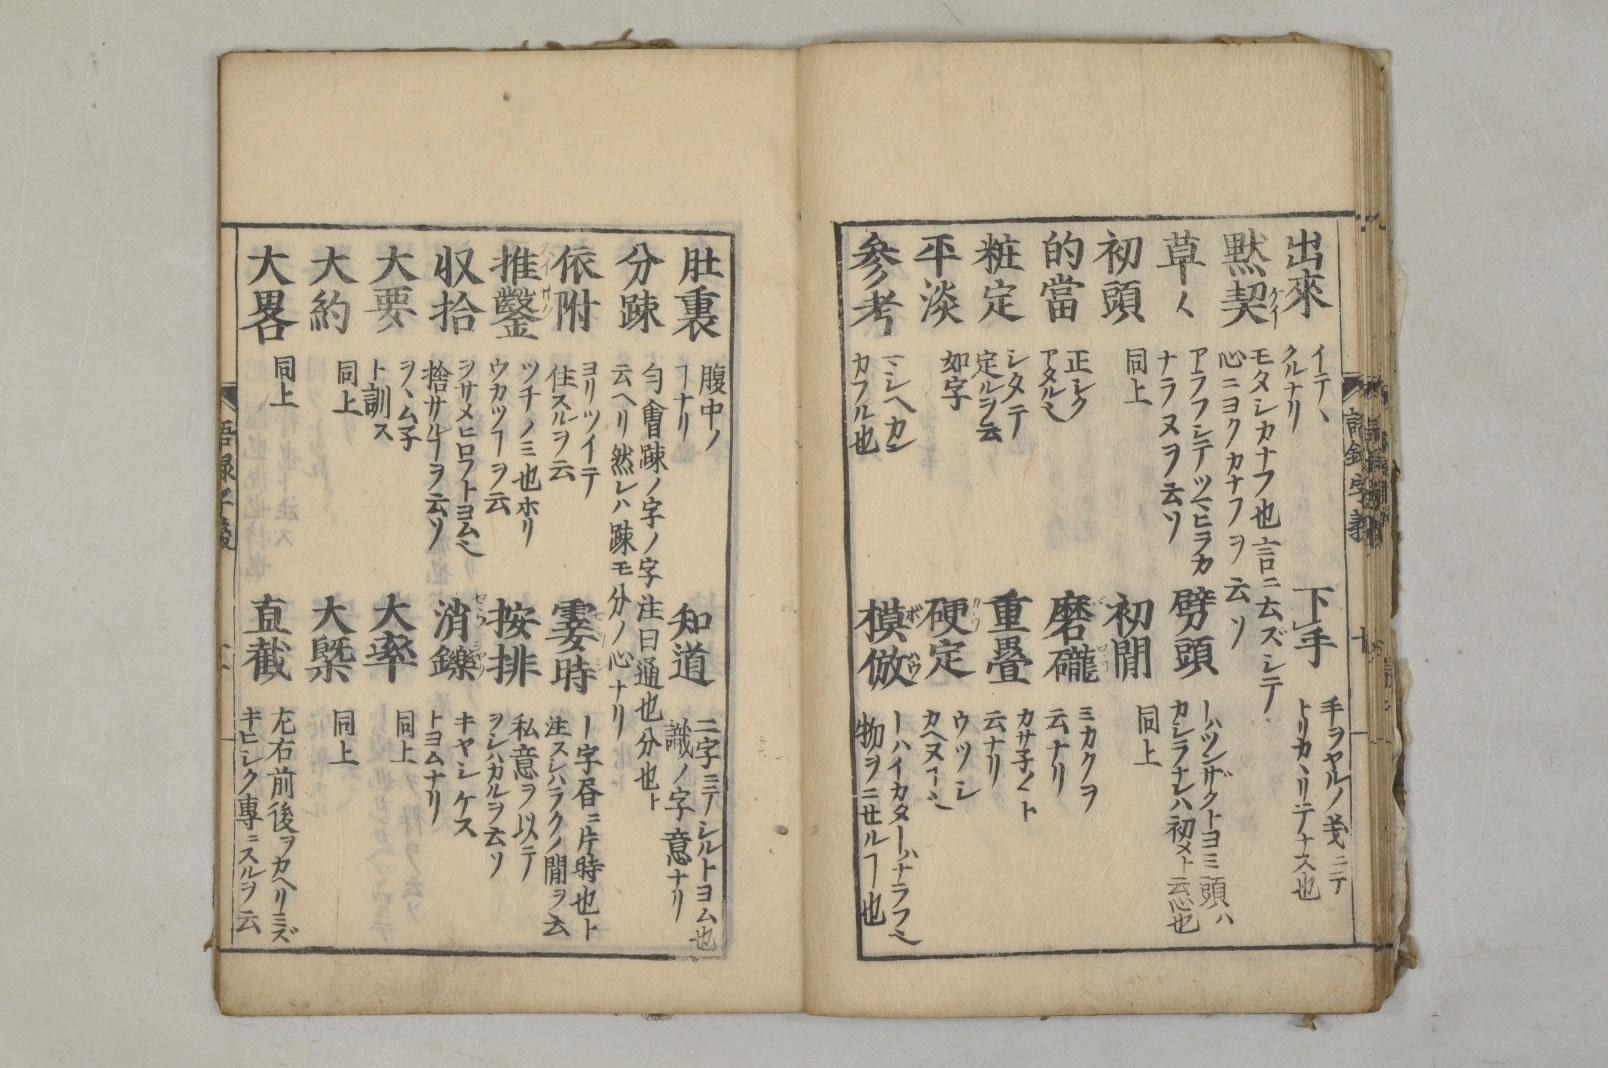 出來
イテヽ
クルナリ
下手
手ヲヤルノ義ニテ
トリカヽリテナス也
黙契
モタシカナフ也言ニ云ズシテ
心ニヨクカナフヲ云ソ
草〱
アラフシテツマヒラカ
ナラヌヲ云ソ
劈頭
ーハツンザクトヨミ頭ハ
カシラナレハ初メト云心也
初頭
同上
初開
同上
的當
正シク
アタル
磨礲
ミカクヲ
云ナリ
粧定
シタテ
定ルヲ云
重疊
カサ子〱ト
云ナリ
平淡
如字
硬定
ウツシ
カヘヌ
參考
マシヘカン
カフル也
模倣
ーハイカターハナラフ
物ヲニセルヿ也
語録字義
肚裏
腹中ノ
ヿナリ
知道
二字ニテシルトヨム也
識ノ字意ナリ
分疎
匀會疎ノ字ノ字注曰通也分也ト
云ヘリ然レハ疎モ分ノ心ナリ
依附
ヨリツイテ
住スルヲ云
霎時
ー字昏ニ片時也ト
注スシハラクノ間ヲ云
推鑿
ツチノミ也ホリ
ウカツヿヲ云
按排
私意ヲ以テ
ヲシハカルヲ云ソ
収拾
ヲサメヒロフトヨム
捨サルヿヲ云ソ
消鑠
キヤシケス
トヨムナリ
大要
ヲヽム子
ト訓ス
大率
同上
大約
同上
大槩
同上
大畧
同上
直截
左右前後ヲカヘリミズ
キヒシク專ニスルヲ云